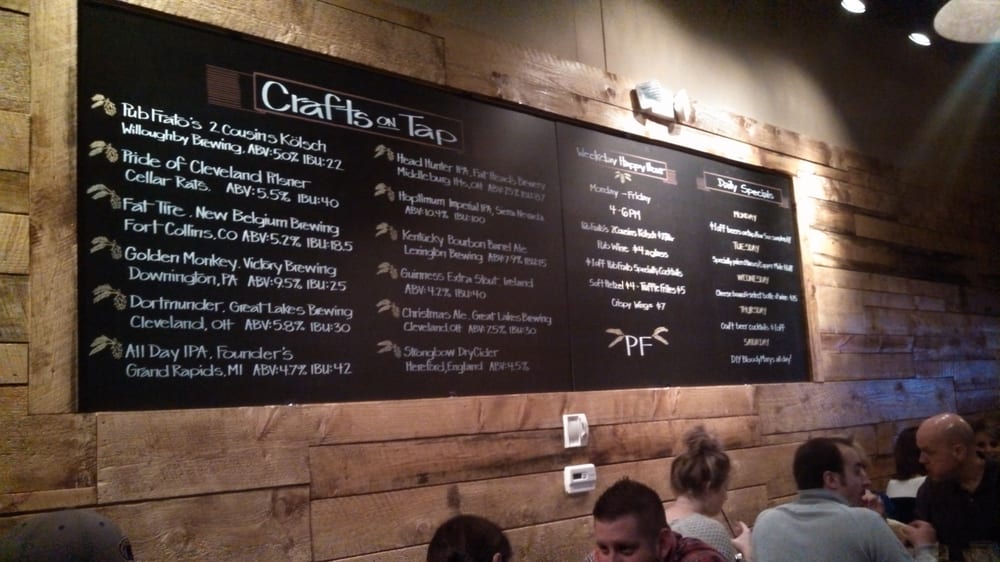 Crafts ON Tap
Pub Frato's 2 Cousins Kölsch
Willoughby Brewing, ABV:5.0% IBU:22
Pride of Cleveland Pilsner
Cellar Rats. ABV:5.5% IBU:40
Fat Tire. New Belgium Brewing
Fort Collins, CO ABV:5.2% IBU:18.5
Golden Monkey. Victory Brewing
Downington, PA ABV:9.5% IBU:25
Dortmunder, Great Lakes Brewing
Cleveland, OH ABV:5.8% IBU:30
All Day IPA, Founder's
Grand Rapids, MI ABV:4.7% IBU:42
Head Hunter IPA, Fat Heads Brewery
Middleburg Hts, OH ABV:7.5% IBU:87
Hoptimum Imperial IPA, Sierra Nevada
ABV:10.4% IBU:100
Kentucky Bourbon Barrel Ale
Lexington Brewing ABV:7.9% IBU:15
Guinness Extra Stout Ireland
ABV:4.2% IBU:40
Christmas Ale, Great Lakes Brewing
Cleveland, OH ABV:7.5% IBU:30
Strongbow Dry Cider
Hereford, England ABV:4.5%
Weekday Happy Hour
Monday - Friday
4-6PM
Pub Frato's 2 Cousins Kölsch
Pub Wine $4 a glass
$1 off Pub Frato Specialty Cocktails
Soft Pretzel $4 - Truffle Fries $5
Crispy Wings $7
PF
Daily Specials
MONDAY
$1 off beers
TUESDAY
WEDNESDAY
Cheese board + select bottle of wine
THURSDAY
Craft beer cocktails $1 off
SATURDAY
DIY Bloody Marys all day!